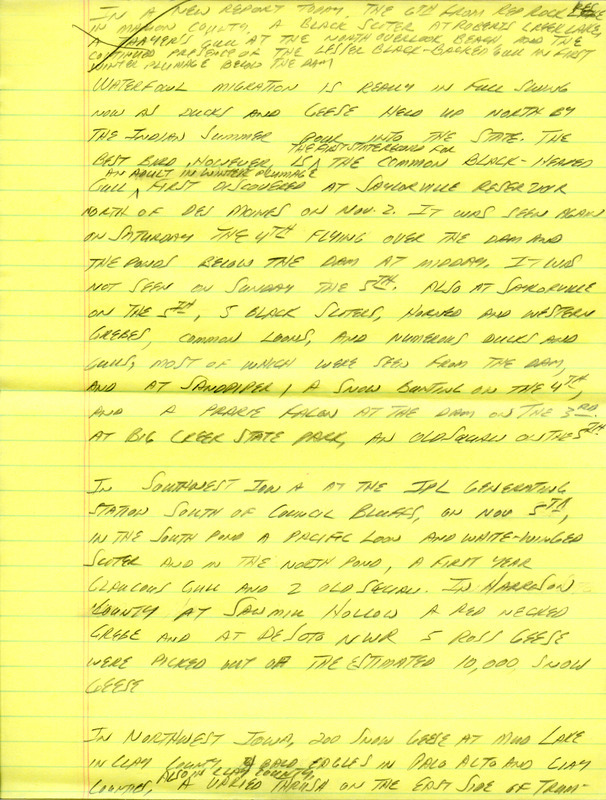 IN A NEW REPORT TODAY, THE 6TH FROM RED ROCK RES
IN MARION COUNTY, A BLACK SCOTER AT ROBERTS CREEK LAKE,
A THAYER'S GULL AT THE NORTH OVERLOOK BEACH AND THE
CONTINUED PRESENCE OF THE LESSER BLACK-BACKED GULL IN FIRST
WINTER PLUMAGE BELOW THE DAM
WATERFOWL MIGRATION IS REALLY IN FULL SWING
NOW AS DUCKS AND GEESE HELD UP NORTH BY
THE INDIAN SUMMER POUR INTO THE STATE. THE
THE FIRST STATE RECORD FOR
BEST BIRD, HOWEVER, IS THE COMMON BLACK-HEADED
AN ADULT IN WINTER PLUMAGE
GULL FIRST DISCOVERED AT SAYLORVILLE RESERVOIR
NORTH OF DES MOINES ON NOV. 2. IT WAS SEEN AGAIN
ON SATURDAY THE 4TH FLYING OVER THE DAM AND
THE PONDS BELOW THE DAM AT MIDDAY. IT WAS
NOT SEEN ON SUNDAY THE 5TH. ALSO AT SAYLORVILLE
ON THE 5TH, 5 BLACK SCOTERS, HORNED AND WESTERN
GREBES, COMMON LOONS, AND NUMEROUS DUCKS AND
GULLS, MOST OF WHICH WERE SEEN FROM THE DAM,
AND AT SANDPIPER, A SNOW BUNTING ON THE 4TH,
AND A PRARIE FALCON AT THE DAM ON THE 3RD.
AT BIG CREEK STATE PARK, AN OLDSQUAW ON THE 5TH
IN SOUTHWEST IOWA AT THE IPL GENERATING
STATION SOUTH OF COUNCIL BLUFFS, ON NOV 5TH,
IN THE SOUTH POND A PACIFIC LOON AND WHITE-WINGED
SCOTER AND IN THE NORTH POND, A FIRST YEAR
GLAUCOUS GULL AND 2 OLDSQUAW. IN HARRISON
COUNTY AT SAWMILL HOLLOW A RED NECKED
GREBE AND AT DESOTO NWR 5 ROSS GEESE
WERE PICKED OUT OF THE ESTIMATED 10,000 SNOW
GEESE
IN NORTHWEST IOWA, 200 SNOW GEESE AT MUD LAKE
IN CLAY COUNTY, BALD EAGLES IN PALO ALTO AND CLAY
ALSO IN CLAY COUNTY,
COUNTIES, A VARIED THRUSH ON THE EAST SIDE OF TRUM-